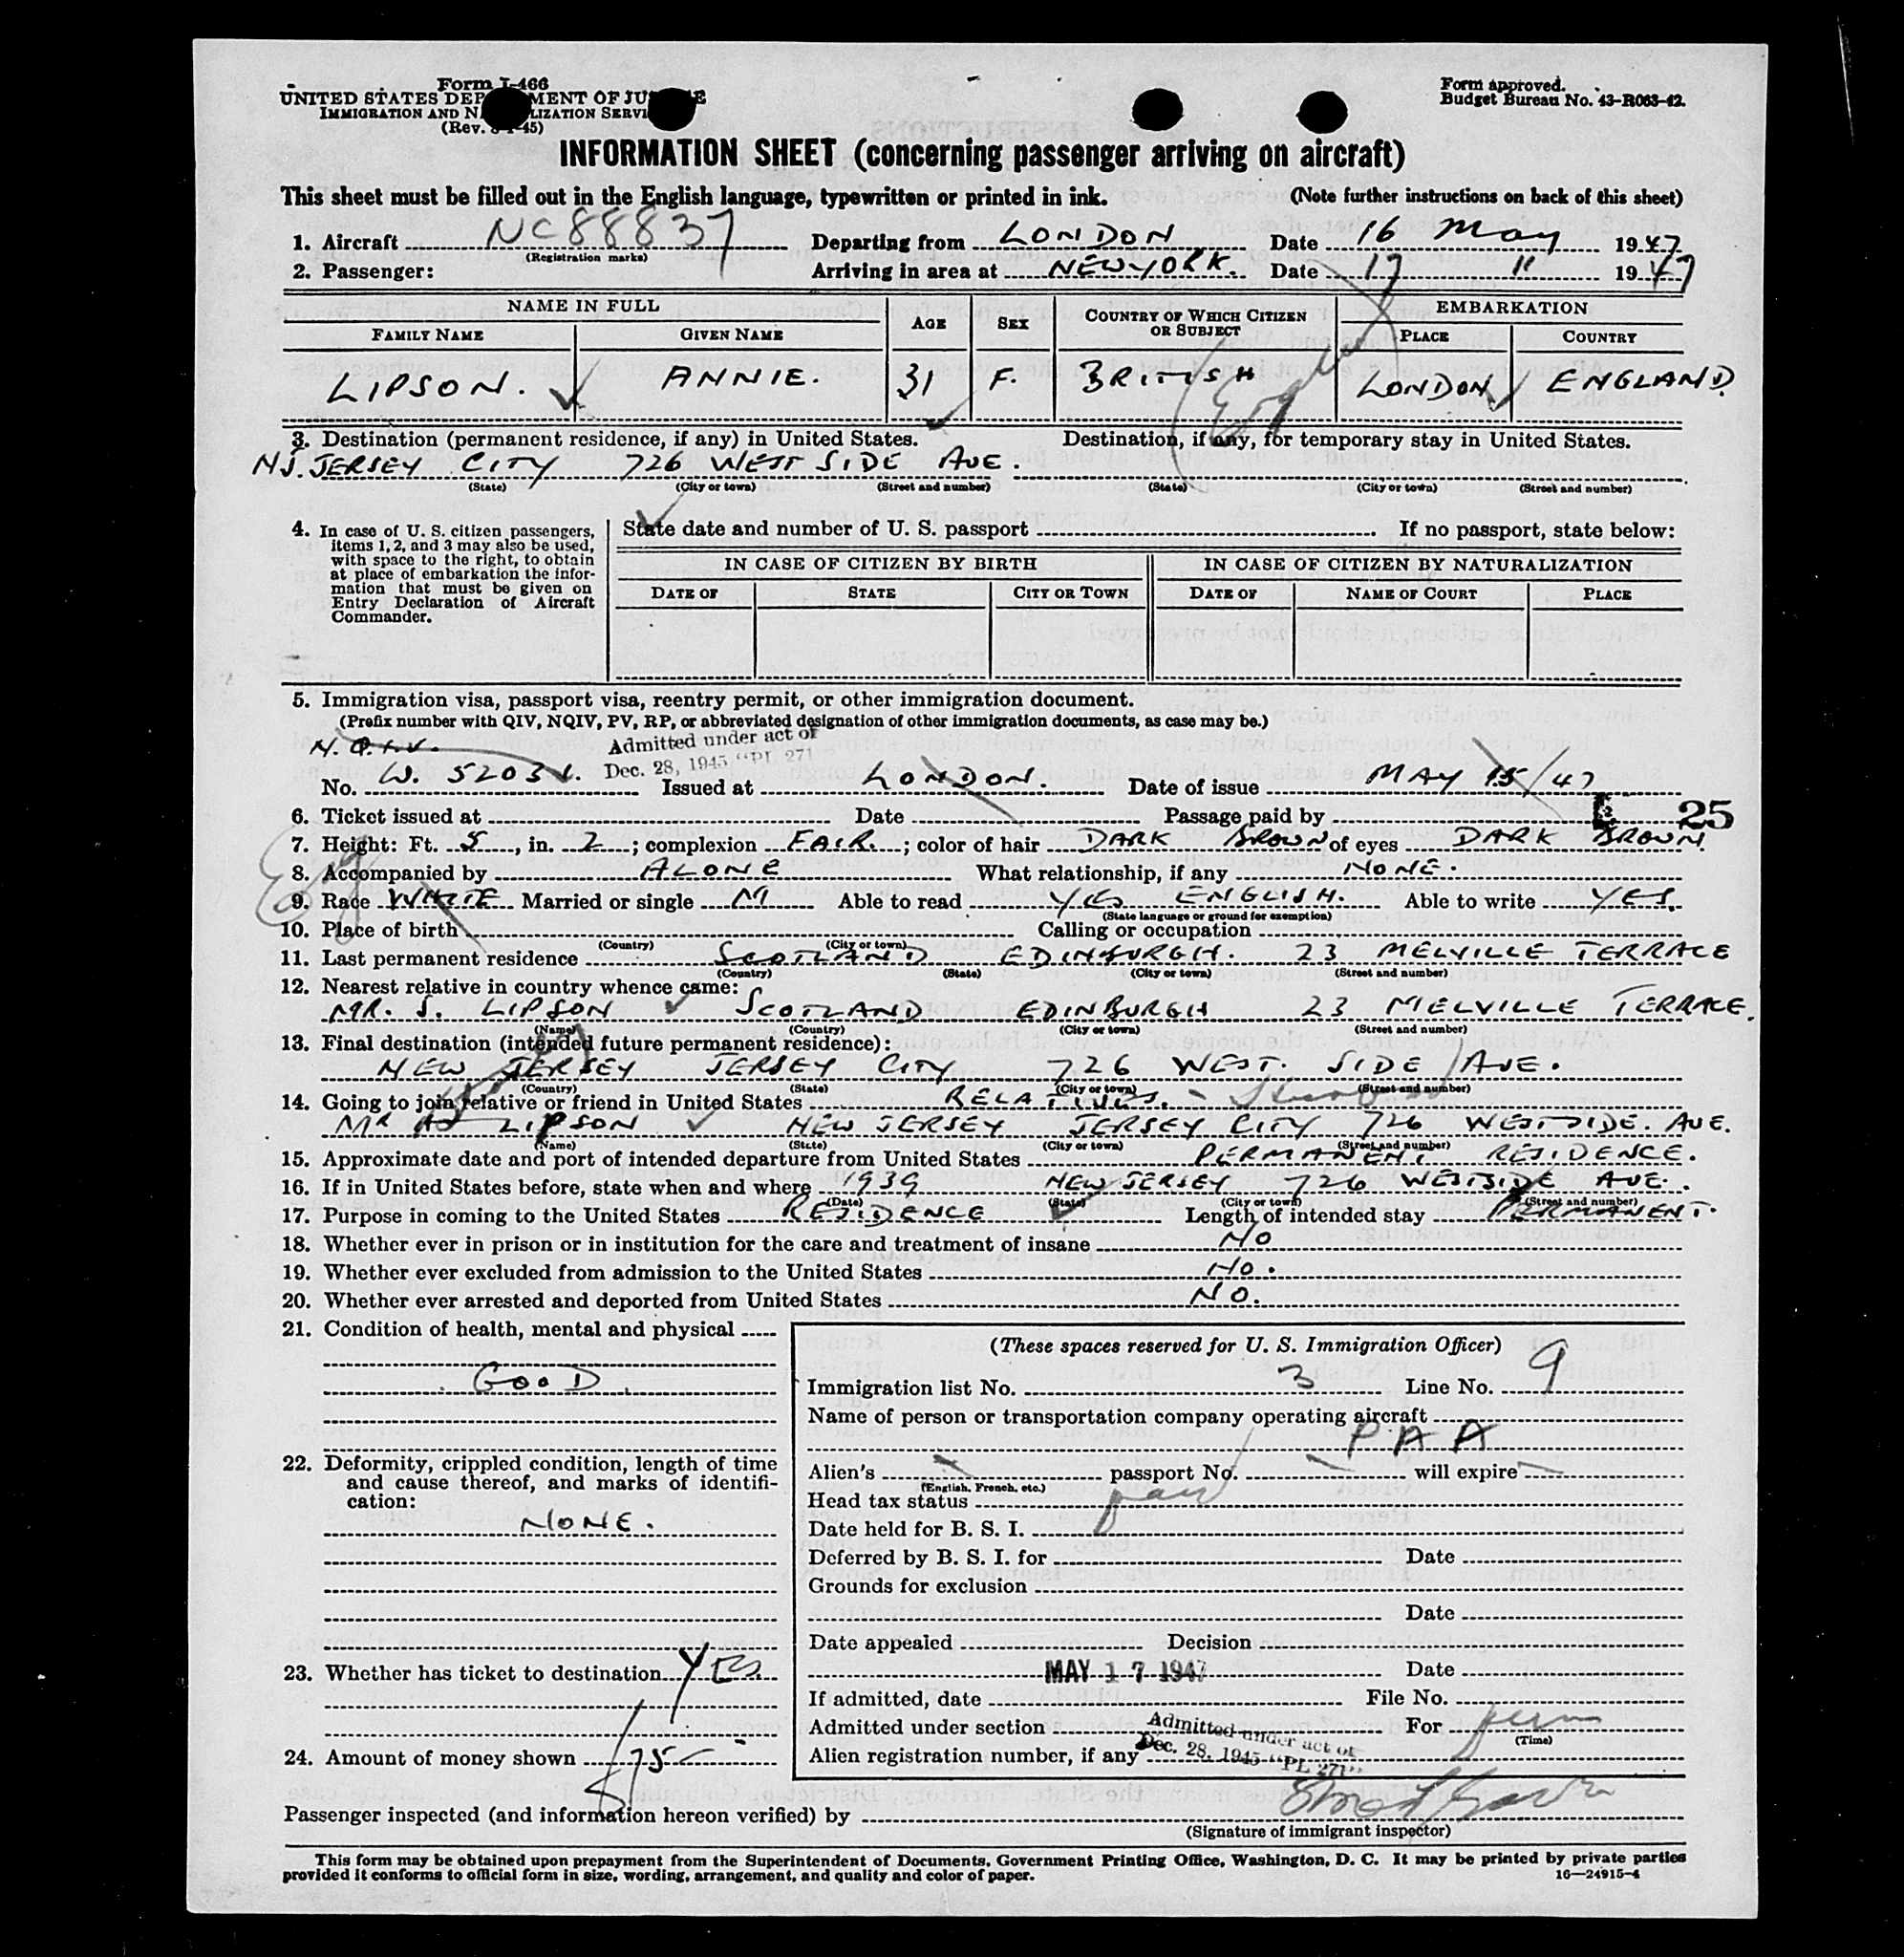 Form I-466
UNITED STATES DEPARTMENT OF JUSTICE
IMMIGRATION AND NATURALIZATION SERVICE
(Rev. 45)
Form approved.
Budget Bureau No. 43-R063-42.
INFORMATION SHEET (concerning passenger arriving on aircraft)
This sheet must be filled out in the English language, typewritten or printed in ink. (Note further instructions on back of this sheet)
1. Aircraft NC88837 Departing from LONDON Date 16 May 1947
(Registration marks)
2. Passenger: Arriving in area at NEW YORK. Date 17 " 1947
NAME IN FULL AGE SEX COUNTRY OF WHICH CITIZEN OR SUBJECT EMBARKATION
FAMILY NAME GIVEN NAME PLACE COUNTRY
LIPSON. ANNIE. 31 F. BRITISH LONDON ENGLAND.
3. Destination (permanent residence, if any) in United States. Destination, if any, for temporary stay in United States.
NJ. JERSEY CITY 726 WEST SIDE AVE.
(State) (City or town) (Street and number) (State) (City or town) (Street and number)
4. In case of U. S. citizen passengers, items 1, 2, and 3 may also be used, with space to the right, to obtain at place of embarkation the information that must be given on Entry Declaration of Aircraft Commander.
State date and number of U. S. passport If no passport, state below:
IN CASE OF CITIZEN BY BIRTH IN CASE OF CITIZEN BY NATURALIZATION
DATE OF STATE CITY OR TOWN DATE OF NAME OF COURT PLACE
5. Immigration visa, passport visa, reentry permit, or other immigration document.
(Prefix number with QIV, NQIV, PV, RP, or abbreviated designation of other immigration documents, as case may be.)
N. Q.I.V. Admitted under act of
Dec. 28, 1945 "PL 271
No. W. 52031. Issued at LONDON. Date of issue MAY 15/47
6. Ticket issued at Date Passage paid by 25
7. Height: Ft. 5, in. 2; complexion FAIR.; color of hair DARK BROWN of eyes DARK BROWN.
8. Accompanied by ALONE What relationship, if any NONE.
9. Race WHITE Married or single M Able to read YES ENGLISH. Able to write YES.
(State language or ground for exemption)
10. Place of birth Calling or occupation
(Country) (City or town)
11. Last permanent residence SCOTLAND EDINBURGH. 23 MELVILLE TERRACE
(Country) (State) (City or town) (Street and number)
12. Nearest relative in country whence came:
MR. S. LIPSON SCOTLAND EDINBURGH 23 MELVILLE TERRACE.
(Name) (Country) (City or town) (Street and number)
13. Final destination (intended future permanent residence):
NEW JERSEY JERSEY CITY 726 WEST. SIDE AVE.
(Country) (State) (City or town) (Street and number)
14. Going to join relative or friend in United States RELATIVES.
MR LIPSON NEW JERSEY JERSEY CITY 726 WESTSIDE. AVE.
(Name) (State) (City or town) (Street and number)
15. Approximate date and port of intended departure from United States PERMANENT RESIDENCE.
16. If in United States before, state when and where 1939 NEW JERSEY 726 WESTSIDE AVE.
(Date) (State) (City or town) (Street and number)
17. Purpose in coming to the United States RESIDENCE Length of intended stay PERMANENT.
18. Whether ever in prison or in institution for the care and treatment of insane NO
19. Whether ever excluded from admission to the United States NO.
20. Whether ever arrested and deported from United States NO.
21. Condition of health, mental and physical
GOOD.
22. Deformity, crippled condition, length of time and cause thereof, and marks of identification:
NONE.
23. Whether has ticket to destination YES
24. Amount of money shown $75
(These spaces reserved for U. S. Immigration Officer)
Immigration list No. 3 Line No. 9
Name of person or transportation company operating aircraft
PAA
Alien's passport No. will expire
(English, French, etc.)
Head tax status paid
Date held for B. S. I.
Deferred by B. S. I. for Date
Grounds for exclusion
Date
Date appealed Decision
MAY 17 1947 Date
If admitted, date File No.
Admitted under section Admitted under act of For perm
(Time)
Alien registration number, if any Dec. 28, 1945 "PL 271"
Passenger inspected (and information hereon verified) by
(Signature of immigrant inspector)
This form may be obtained upon prepayment from the Superintendent of Documents, Government Printing Office, Washington, D. C. It may be printed by private parties
provided it conforms to official form in size, wording, arrangement, and quality and color of paper. 16—24915-4